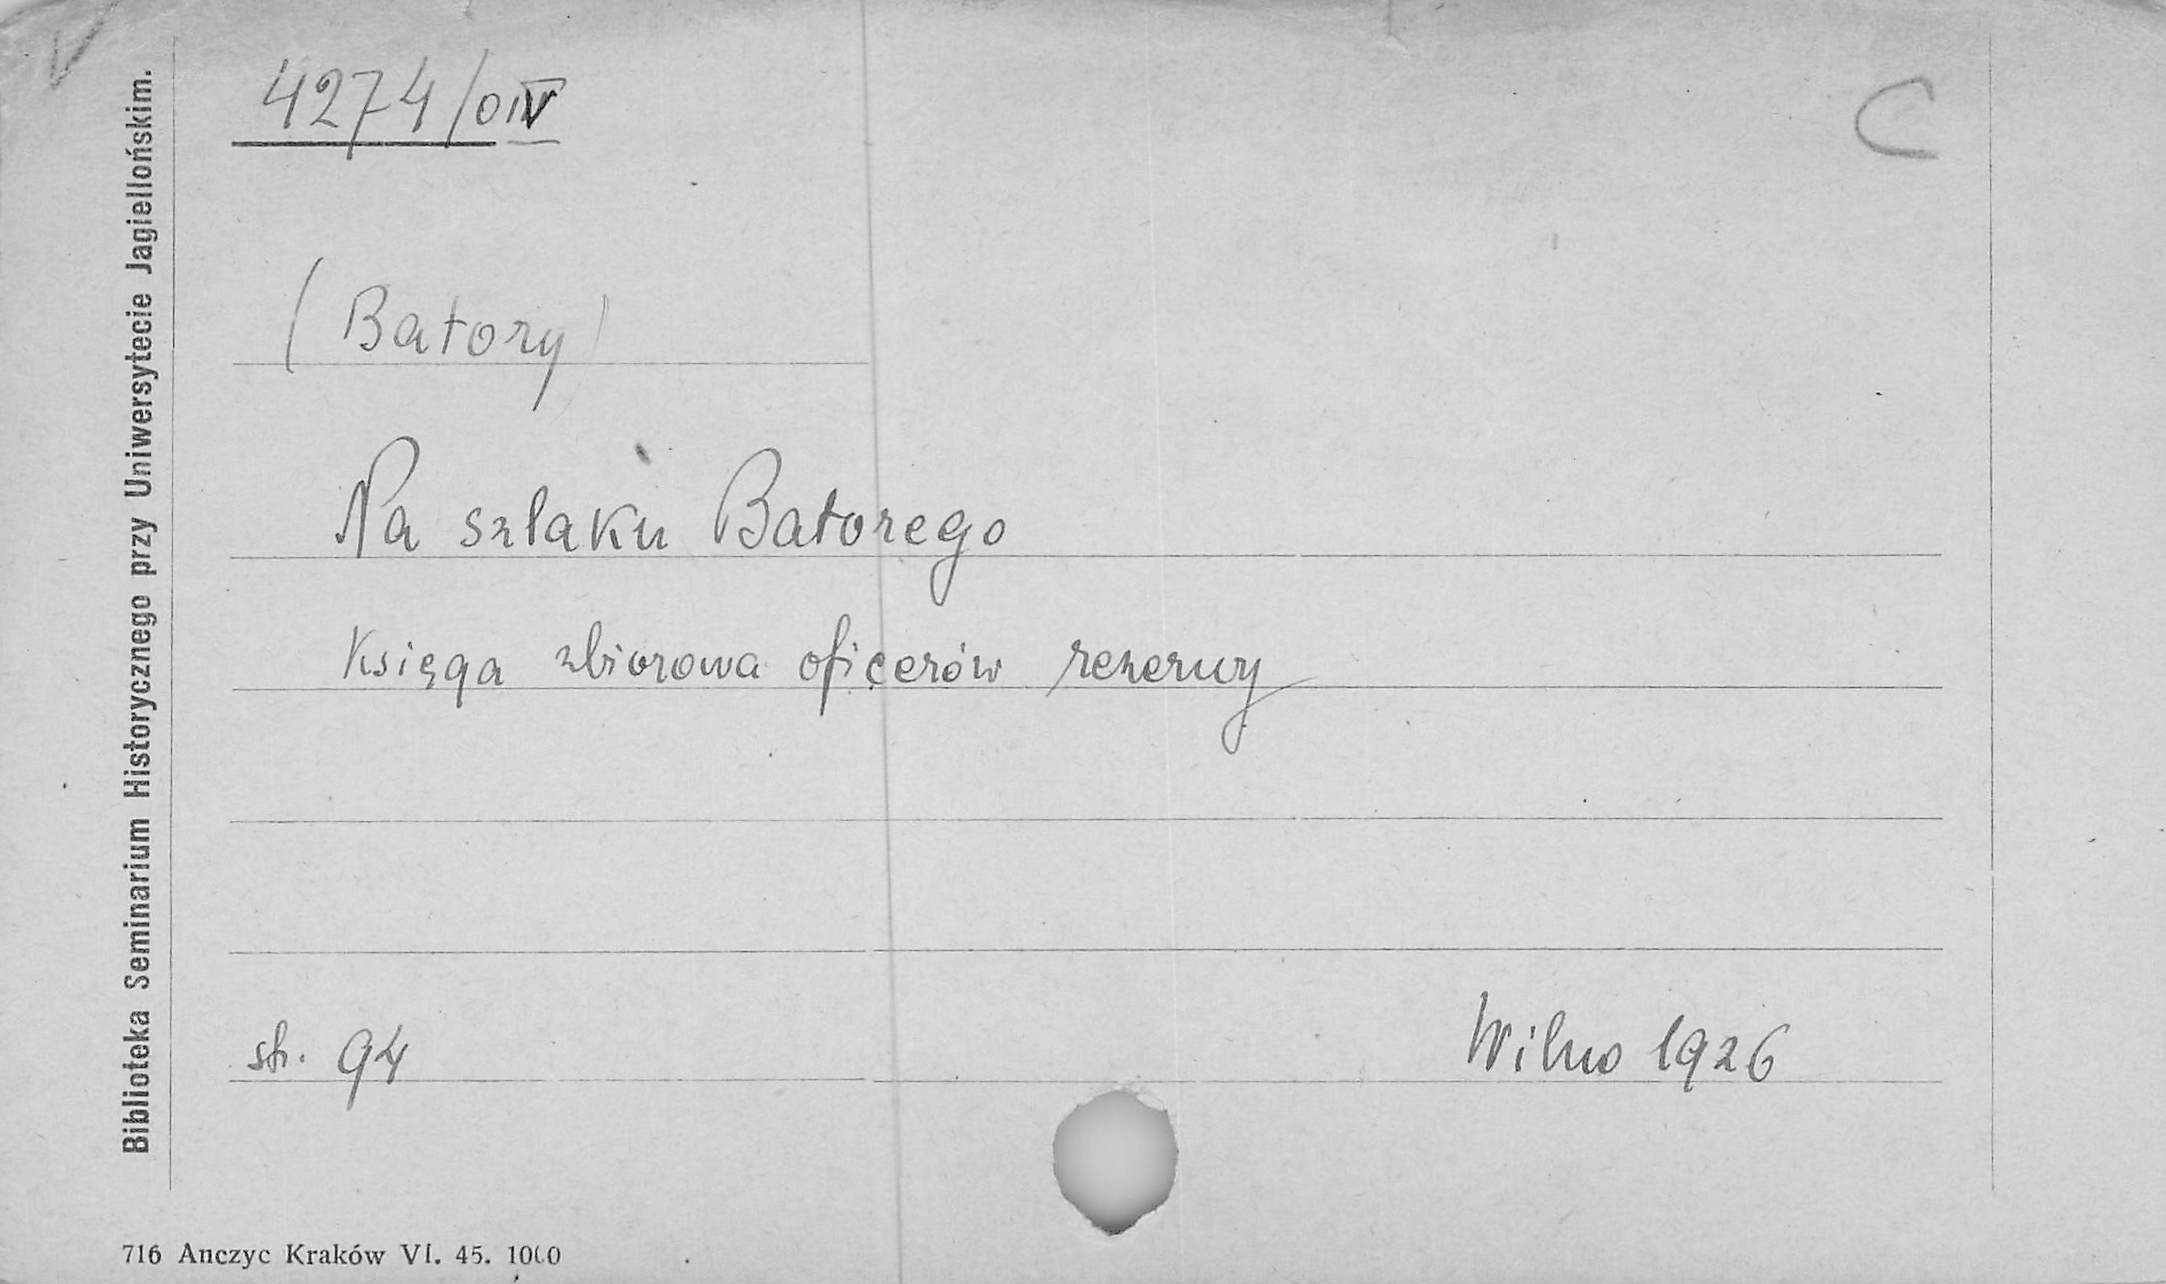 4274/OIV
C
(Batory)
Na szlaku Batorego
Księga zbiorowa oficerów rezerwy
str. 94
Wilno 1926
Biblioteka Seminarium Historycznego przy Uniwersytecie Jagiellońskim.
716 Anczyc Kraków VI. 45. 1000